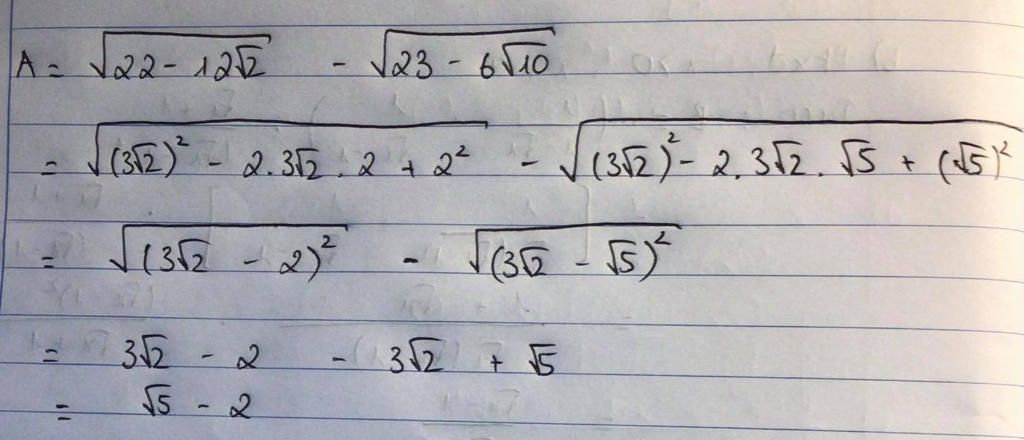 A = √(22 - 12√2) - √(23 - 6√10)
= √((3√2)² - 2.3√2.2 + 2²) - √((3√2)² - 2.3√2.√5 + (√5)²)
= √((3√2 - 2)²) - √((3√2 - √5)²)
= 3√2 - 2 - 3√2 + √5
= √5 - 2